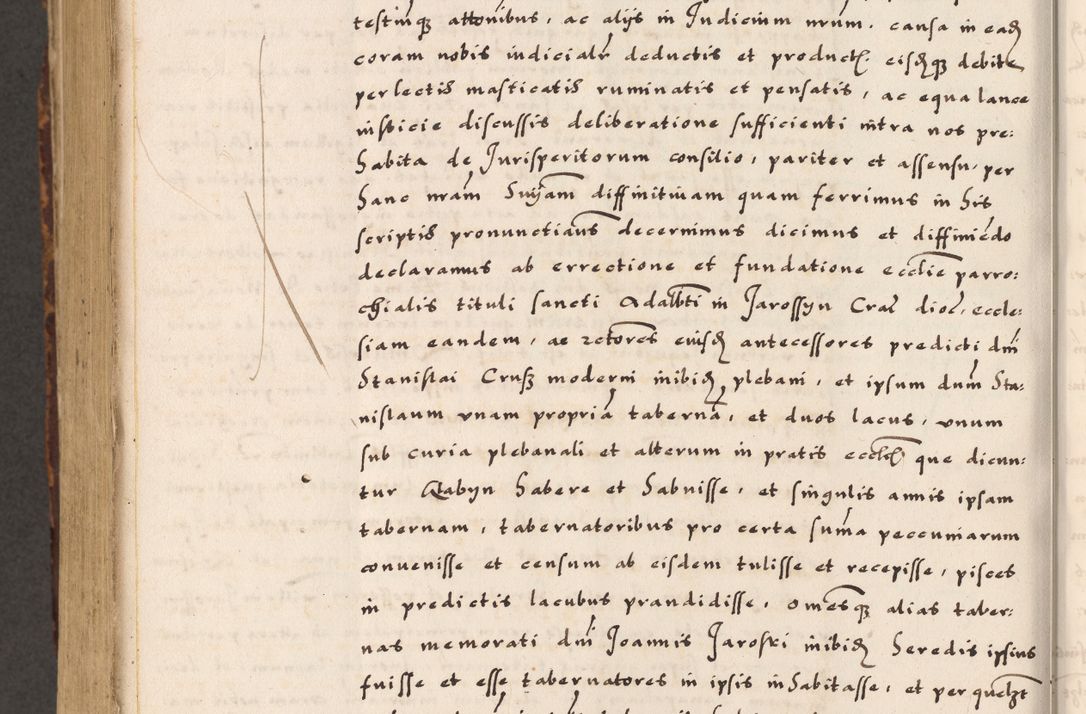 testiuſq attonibus, ac alijs in Judicium nrum, causa in eaɖ
coram nobis iudicialr deductis et product, eisɖq debite
perlectis masticatis ruminatis et pensatis, ac equa lance
iusticie discussis deliberatione sufficienti intra nos pre:
habita de Jurisperitorum consilio, pariter et assensu, per
hanc nram Snyam diffinitiuam quam ferrimus in his
scriptis pronunctiaus decernimus dicimus et diffiniedo
declaramus ab errectione et fundatione ecclie parro:
chialis tituli sancti Adalbti in Jarossyn Crac dioc, eccle:
siam eandem, ac rctores eiusɖ antecessores predicti dni
Stanislai Crusz moderni inibiɖ plebani, et ipsum dnum Sta:
nislaum vnam propria taberna, et duos lacus, vnum
sub curia plebanali et alterum in pratis eccl que dicun:
tur Stabyn habere et habuisse, et singulis annis ipsam
tabernam, tabernatoribus pro certa suma peccuniarum
conuenisse et censum ab eisdem tulisse et recepisse, pisces
in predictis lacubus prandidisse, omesq alias taber:
nas memorati dni Joannis Jaroski inibiɖ heredis ipsius
fuisse et esse tabernatores in ipsis inhabitasse, et per quelzt